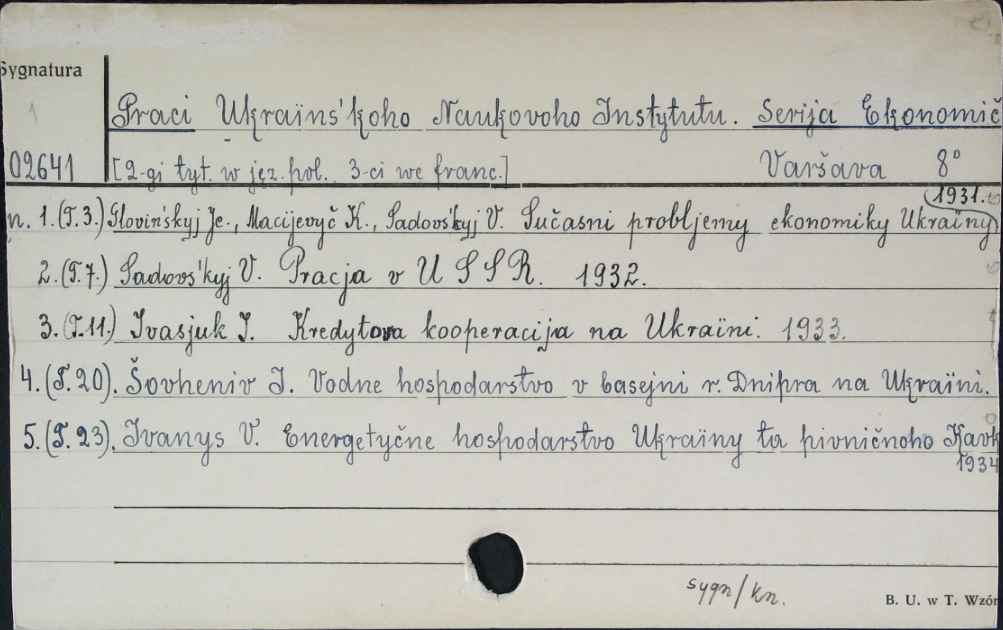 Sygnatura
1
Praci Ukraïns'koho Naukovoho Instytutu. Serija Ekonomič
02641 [2-gi tyt. w jęz. pol. 3-ci we franc.] Varšava 8°
1931.
n. 1. (T.3.) Slovins'kyj Je., Macijevyč K., Sadovs'kyj V. Sučasni probljemy ekonomiky Ukraïny
2. (T.7.) Sadovs'kyj V. Pracja v U S S R. 1932.
3. (T.11.) Ivasjuk I. Kredytova kooperacija na Ukraïni. 1933.
4. (T. 20). Šovheniv I. Vodne hospodarstvo v basejni r. Dnipra na Ukraïni.
5. (T. 23). Ivanys V. Energetyčne hospodarstvo Ukraïny ta pivničnoho Kavk
1934
sygn/kn.
B. U. w T. Wzór